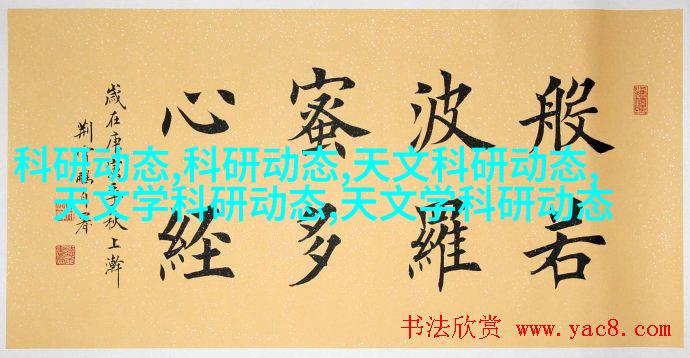 般若
波羅
蜜多
心経
歳在庚寅年秋上澣
荆霄鹏自署
科研动态,科研动态,天文科研动态,
天文学科研动态,天文学科研动态
书法欣赏 www.yac8.com